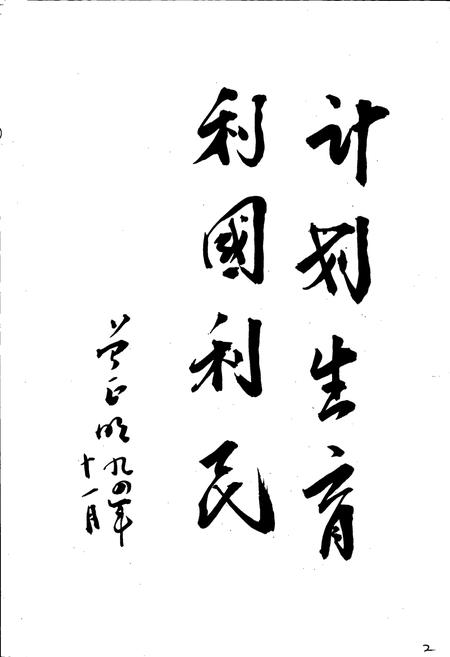 计划生育
利國利民
曾正明 九四年
十一月
2